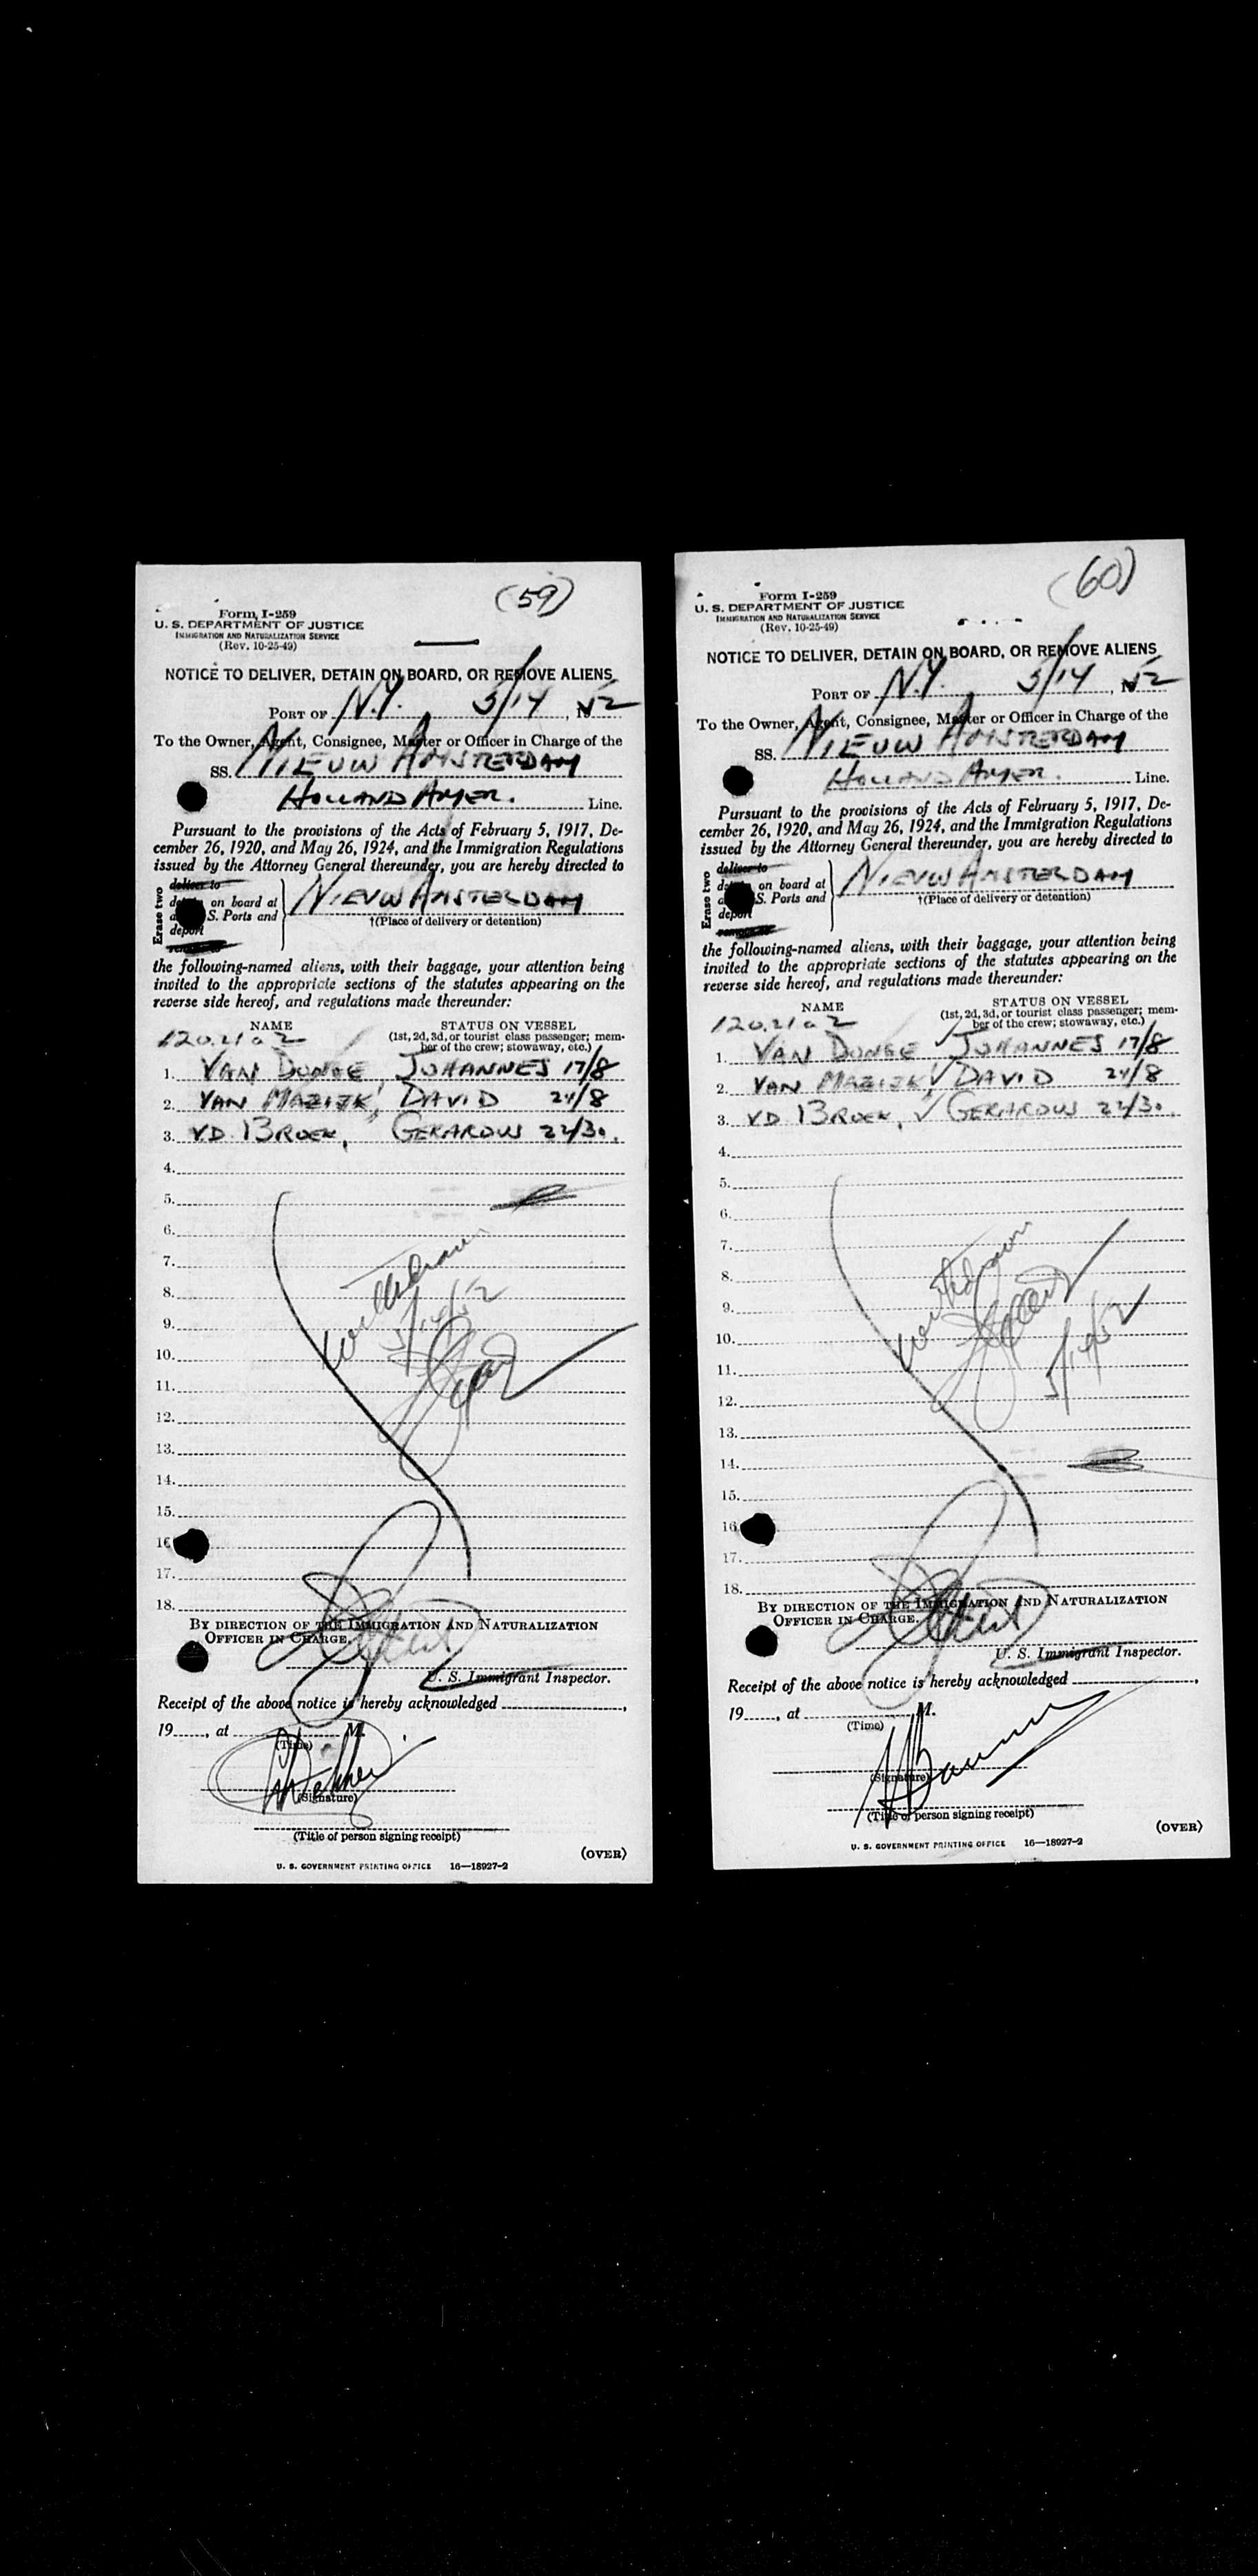 (59)
Form I-259
U. S. DEPARTMENT OF JUSTICE
IMMIGRATION AND NATURALIZATION SERVICE
(Rev. 10-25-49)
NOTICE TO DELIVER, DETAIN ON BOARD, OR REMOVE ALIENS
PORT OF N.Y. 5/14, 52
To the Owner, Agent, Consignee, Master or Officer in Charge of the
SS. NIEUW AMSTERDAM
HOLLAND AMER. Line.
Pursuant to the provisions of the Acts of February 5, 1917, De-
cember 26, 1920, and May 26, 1924, and the Immigration Regulations
issued by the Attorney General thereunder, you are hereby directed to
Erase two
deliver to
on board at
S. Ports and
deport
NIEUW AMSTERDAM
†(Place of delivery or detention)
the following-named aliens, with their baggage, your attention being
invited to the appropriate sections of the statutes appearing on the
reverse side hereof, and regulations made thereunder:
NAME STATUS ON VESSEL
(1st, 2d, 3d, or tourist class passenger; mem-
ber of the crew; stowaway, etc.)
1. VAN DONGE, JOHANNES 17/8
2. VAN MAZIJK, DAVID 24/8
3. VD BROEK, GERARDUS 22/30.
4.
5.
6.
7.
8.
9.
10.
11.
12.
13.
14.
15.
16
17.
18.
withdrawn
5/14/52
BY DIRECTION OF THE IMMIGRATION AND NATURALIZATION
OFFICER IN CHARGE.
U. S. Immigrant Inspector.
Receipt of the above notice is hereby acknowledged ,
19 , at M.
(Time)
(Signature)
(Title of person signing receipt)
(OVER)
U. S. GOVERNMENT PRINTING OFFICE 16—18927-2
(60)
Form I-259
U. S. DEPARTMENT OF JUSTICE
IMMIGRATION AND NATURALIZATION SERVICE
(Rev. 10-25-49)
NOTICE TO DELIVER, DETAIN ON BOARD, OR REMOVE ALIENS
PORT OF N.Y. 5/14, 52
To the Owner, Agent, Consignee, Master or Officer in Charge of the
SS. NIEUW AMSTERDAM
HOLLAND AMER. Line.
Pursuant to the provisions of the Acts of February 5, 1917, De-
cember 26, 1920, and May 26, 1924, and the Immigration Regulations
issued by the Attorney General thereunder, you are hereby directed to
Erase two
deliver to
on board at
S. Ports and
deport
NIEUW AMSTERDAM
†(Place of delivery or detention)
the following-named aliens, with their baggage, your attention being
invited to the appropriate sections of the statutes appearing on the
reverse side hereof, and regulations made thereunder:
NAME STATUS ON VESSEL
(1st, 2d, 3d, or tourist class passenger; mem-
ber of the crew; stowaway, etc.)
1. VAN DONGE JOHANNES 17/8
2. VAN MAZIJK DAVID 24/8
3. VD BROEK, GERARDUS 22/30.
4.
5.
6.
7.
8.
9.
10.
11.
12.
13.
14.
15.
16
17.
18.
withdrawn
5/14/52
BY DIRECTION OF THE IMMIGRATION AND NATURALIZATION
OFFICER IN CHARGE.
U. S. Immigrant Inspector.
Receipt of the above notice is hereby acknowledged ,
19 , at M.
(Time)
(Signature)
(Title of person signing receipt)
(OVER)
U. S. GOVERNMENT PRINTING OFFICE 16—18927-2